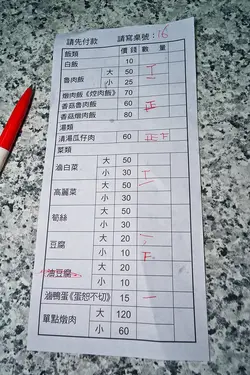 請先付款 請寫桌號：16
飯類 價錢 數量
白飯 10
魯肉飯 大 50
小 25
燉肉飯《焢肉飯》 70
香菇魯肉飯 60 正
香菇燉肉飯 80
湯類
清湯瓜仔肉 60
菜類
滷白菜 大 50
小 30
高麗菜 大 50
小 30
筍絲 大 50
小 30
豆腐 大 20
小 10
油豆腐 大 20
小 10
滷鴨蛋《蛋恕不切》 15 一
單點燉肉 大 120
小 60